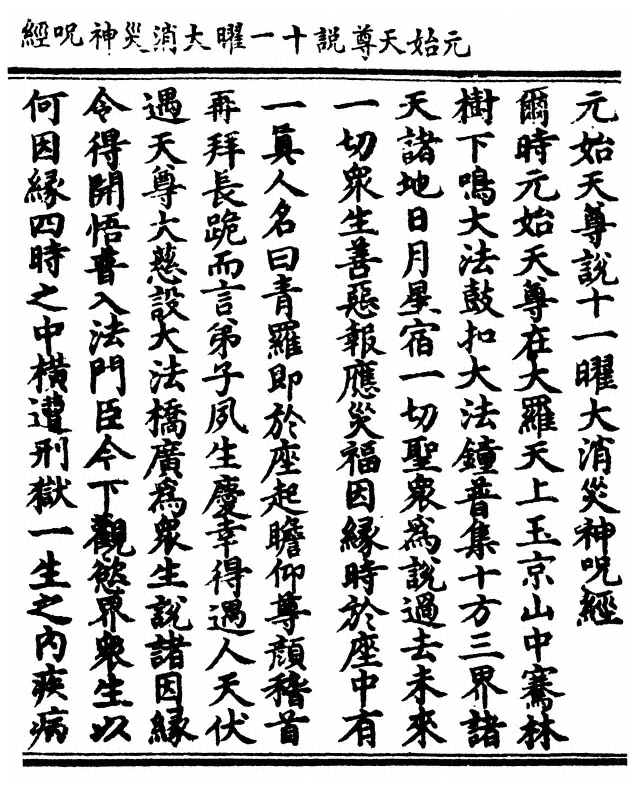 元始天尊說十一曜大消災神呪經
元始天尊說十一曜大消災神呪經
爾時元始天尊在大羅天上玉京山中騫林
樹下鳴大法鼓扣大法鐘普集十方三界諸
天諸地日月星宿一切聖衆爲說過去未來
一切衆生善惡報應災福因緣時於座中有
一眞人名曰青羅即於座起瞻仰尊顏稽首
再拜長跪而言弟子夙生慶幸得遇人天伏
遇天尊大慈設大法橋廣爲衆生說諸因緣
令得開悟普入法門臣今下觀慾界衆生以
何因緣四時之中橫遭刑獄一生之內疾病